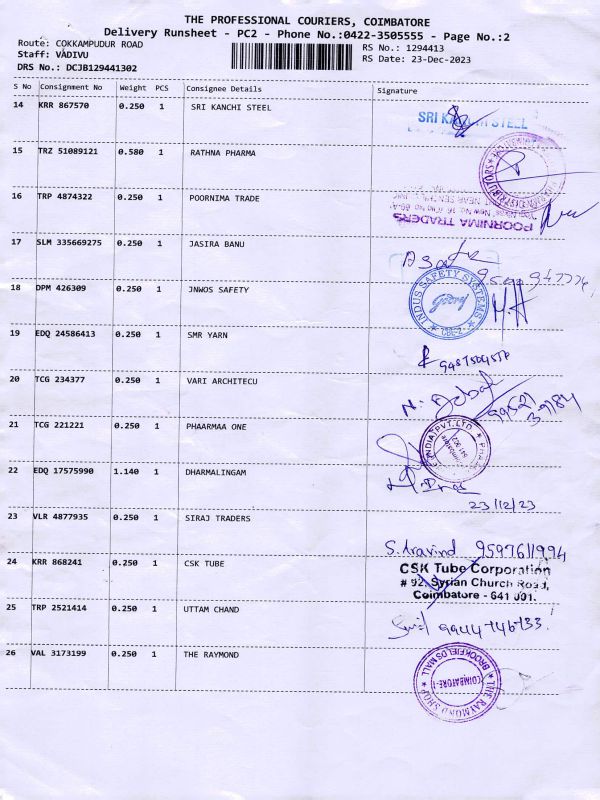 THE PROFESSIONAL COURIERS, COIMBATORE
Delivery Runsheet - PC2 - Phone No.:0422-3505555 - Page No.:2
Route: COKKAMPUDUR ROAD RS No.: 1294413
Staff: VADIVU RS Date: 23-Dec-2023
DRS No.: DCJB129441302
S No Consignment No Weight PCS Consignee Details Signature
14 KRR 867570 0.250 1 SRI KANCHI STEEL
SRI KANCHI STEEL
15 TRZ 51089121 0.580 1 RATHNA PHARMA
16 TRP 4874322 0.250 1 POORNIMA TRADE
POORNIMA TRADERS
17 SLM 335669275 0.250 1 JASIRA BANU
18 DPM 426309 0.250 1 JNWOS SAFETY
INDUS SAFETY SYSTEMS
Godrej
CBE-2
19 EDQ 24586413 0.250 1 SMR YARN
20 TCG 234377 0.250 1 VARI ARCHITECU
21 TCG 221221 0.250 1 PHAARMAA ONE
INDIA PVT. LTD
22 EDQ 17575990 1.140 1 DHARMALINGAM
23/12/23
23 VLR 4877935 0.250 1 SIRAJ TRADERS
S. Aravind 9597611994
24 KRR 868241 0.250 1 CSK TUBE
CSK Tube Corporation
# 92, Syrian Church Road,
Coimbatore - 641 001.
25 TRP 2521414 0.250 1 UTTAM CHAND
9944746733
26 VAL 3173199 0.250 1 THE RAYMOND
THE RAYMOND SHOP
BROOKFIELDS MALL
COIMBATORE-1